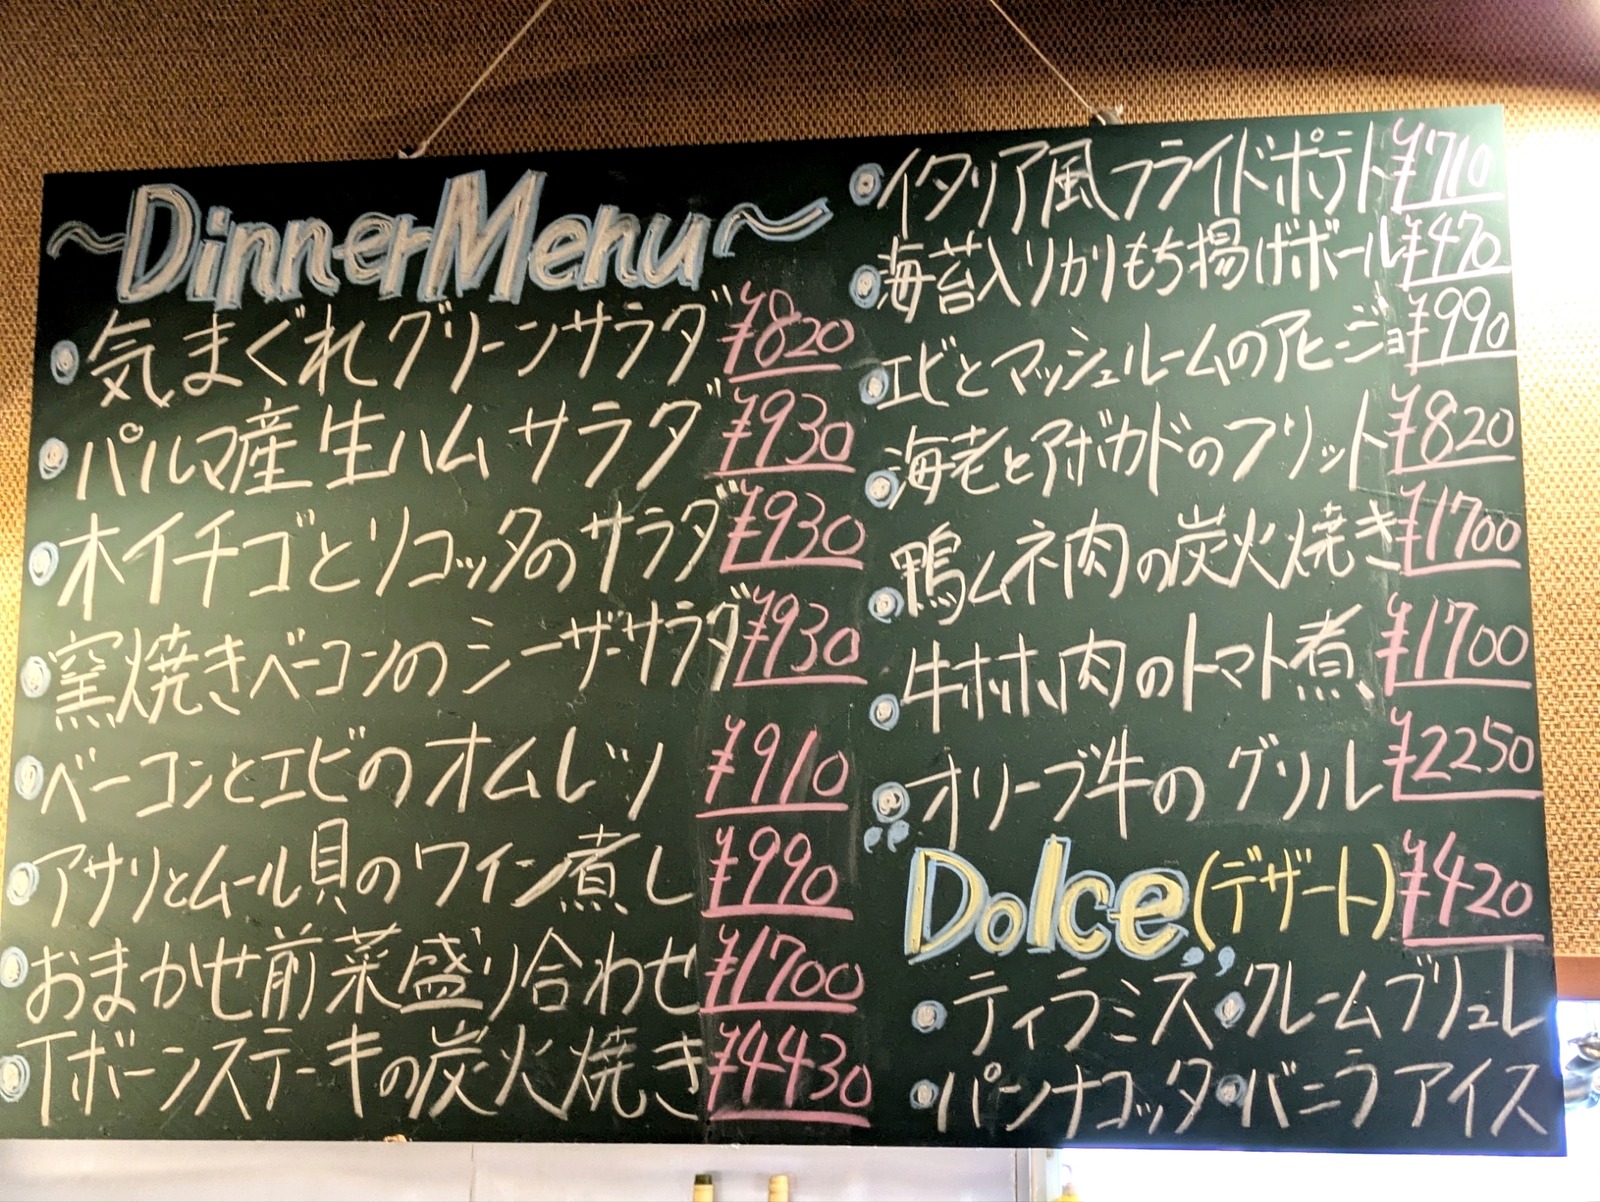 ~Dinner Menu~
気まぐれグリーンサラダ ¥820
パルマ産生ハムサラダ ¥930
木イチゴとリコッタのサラダ ¥930
窯焼きベーコンのシーザーサラダ ¥930
ベーコンとエビのオムレツ ¥910
アサリとムール貝のワイン煮し ¥990
おまかせ前菜盛り合わせ ¥1700
Tボーンステーキの炭火焼き ¥4430
イタリア風フライドポテト ¥710
海苔入りカリもち揚げボール ¥470
エビとマッシュルームのアヒージョ ¥990
海老とアボカドのフリット ¥820
鴨ムネ肉の炭火焼き ¥1700
牛ホホ肉のトマト煮 ¥1700
オリーブ牛のグリル ¥2250
"Dolce" (デザート) ¥420
ティラミス クレームブリュレ
パンナコッタ バニラアイス